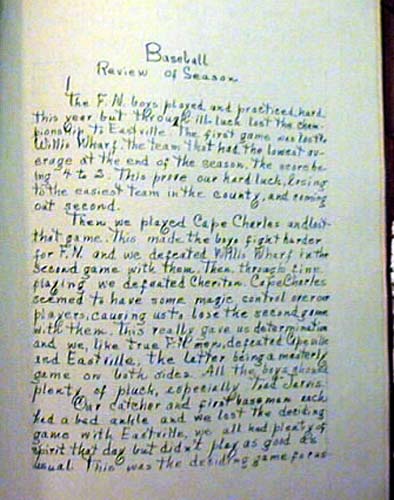 Baseball
Review of Season
The F.N. boys played and practiced hard
this year but through ill-luck lost the cham-
pionship to Eastville. The first game was lost to
Willis Wharf, the team that had the lowest av-
erage at the end of the season, the score be-
ing 4 to 2. This prove our hard luck, losing
to the easiest team in the county, and coming
out second.
Then we played Cape Charles and lost
that game. This made the boys fight harder
for F.N. and we defeated Willis Wharf in the
second game with them. Then, through fine
playing we defeated Cheriton. Cape Charles
seemed to have some magic control over our
players, causing us to lose the second game
with them. This really gave us determination
and we, like true F.N. men, defeated Capeville
and Eastville, the latter being a masterly
game on both sides. All the boys showed
plenty of pluck, especially Jarvis.
Our catcher and first basemen each
had a bad ankle and we lost the deciding
game with Eastville, we all had plenty of
spirit that day but didn't play as good as
usual. This was the deciding game for us